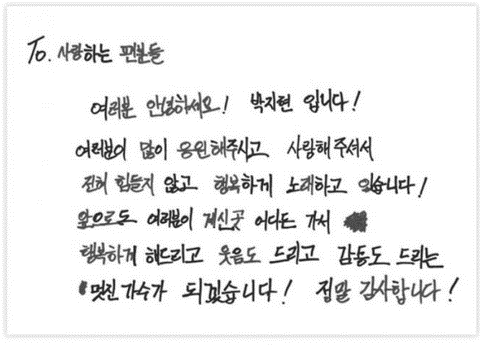 To. 사랑하는 팬분들
여러분 안녕하세요! 박지현 입니다!
여러분이 많이 응원해주시고 사랑해주셔서
전혀 힘들지 않고 행복하게 노래하고 있습니다!
앞으로도 여러분이 계신곳 어디든 가서
행복하게 해드리고 웃음도 드리고 감동도 드리는
멋진가수가 되겠습니다! 정말 감사합니다!